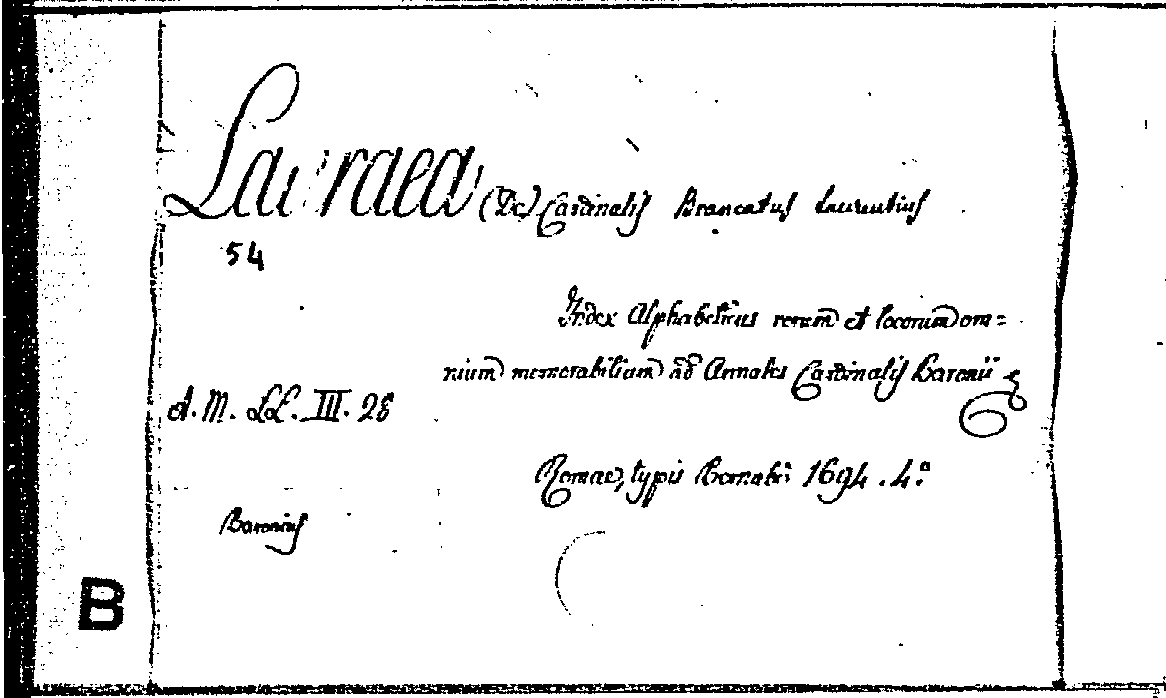 Lauraea (De) Cardinalis Brancatus Laurentius
54
Index Alphabeticus rerum et locorum om=
nium memorabilium ad Annales Cardinalis Baronii
A. M. LL. III. 28
Romae, typis Barnabò 1694. 4.º
Baronius
B